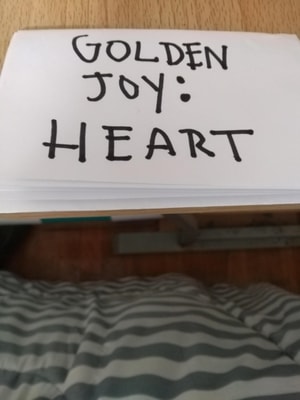 GOLDEN
JOY:
HEART